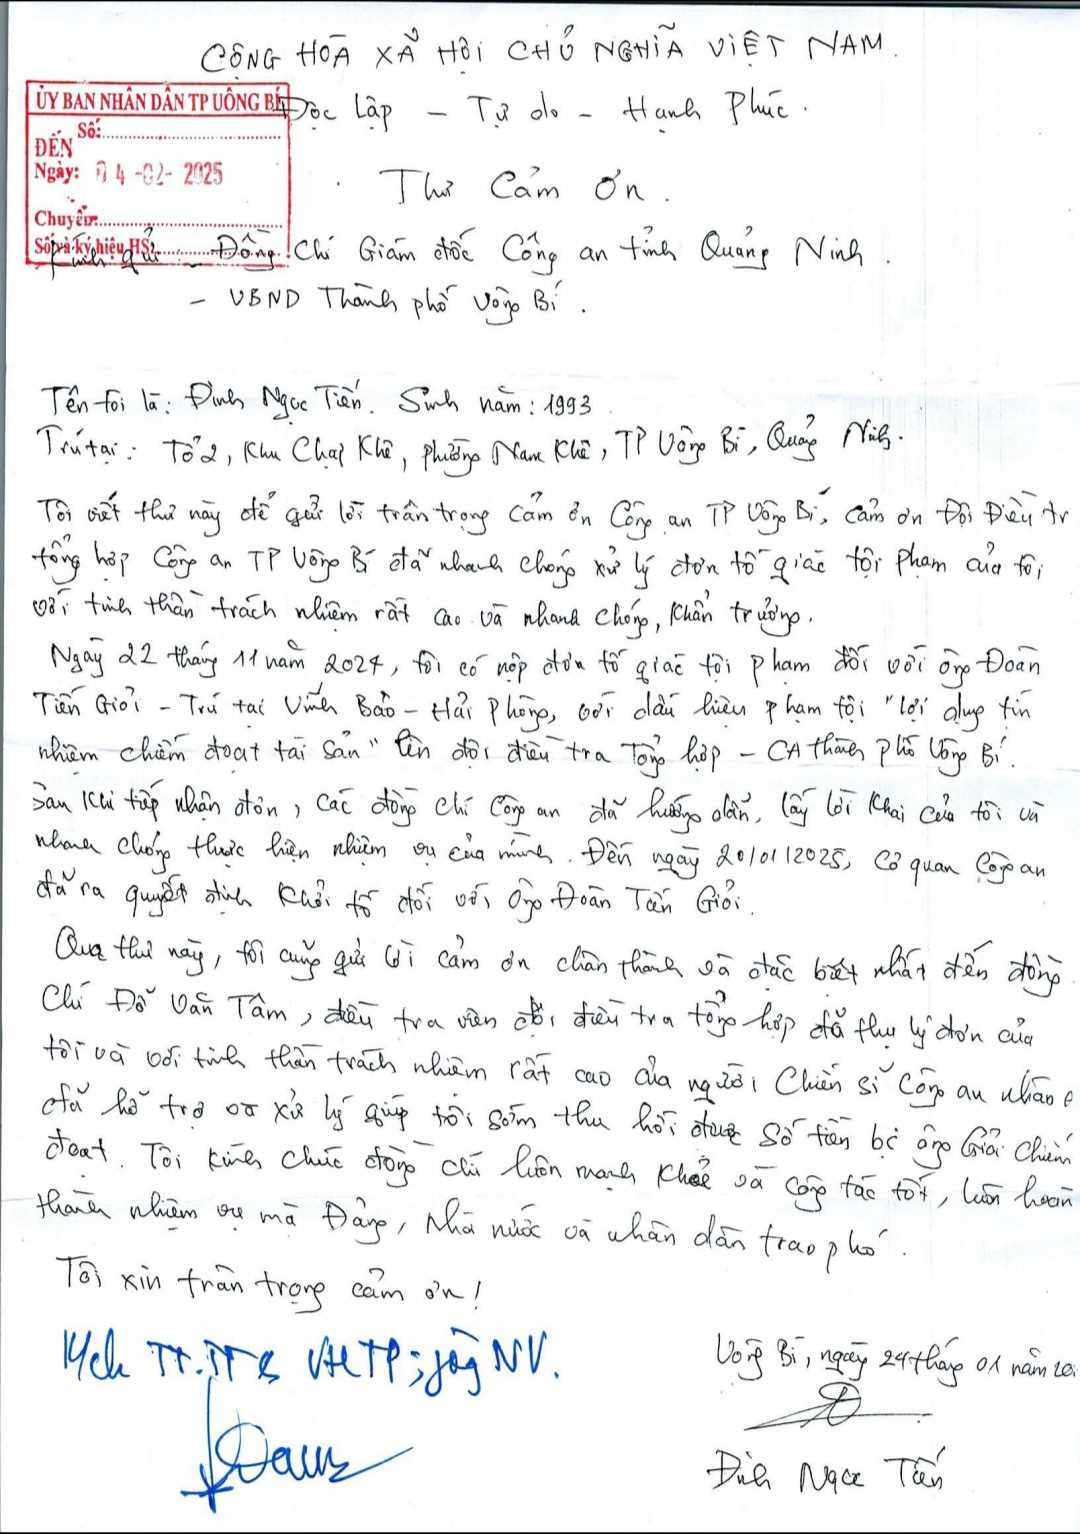 CỘNG HÒA XÃ HỘI CHỦ NGHĨA VIỆT NAM.
Độc Lập - Tự do - Hạnh Phúc.
ỦY BAN NHÂN DÂN TP UÔNG BÍ
Số:
ĐẾN
Ngày: 04-02-2025
Chuyển:
Số và ký hiệu HS:
Thư Cảm Ơn.
Kính gửi - Đồng Chí Giám đốc Công an tỉnh Quảng Ninh.
- UBND Thành phố Uông Bí.
Tên tôi là: Đinh Ngọc Tiến. Sinh năm: 1993
Trú tại: Tổ 2, Khu Chạp Khê, phường Nam Khê, TP Uông Bí, Quảng Ninh.
Tôi viết thư này để gửi lời trân trọng cảm ơn Công an TP Uông Bí, cảm ơn Đội Điều tr
tổng hợp Công an TP Uông Bí đã nhanh chóng xử lý đơn tố giác tội phạm của tôi
với tinh thần trách nhiệm rất cao và nhanh chóng, khẩn trương.
Ngày 22 tháng 11 năm 2024, tôi có nộp đơn tố giác tội phạm đối với ông Đoàn
Tiến Giỏi - Trú tại Vĩnh Bảo - Hải Phòng, với dấu hiệu phạm tội "lợi dụng tín
nhiệm chiếm đoạt tài sản" lên đội điều tra Tổng hợp - CA thành phố Uông Bí.
Sau khi tiếp nhận đơn, các đồng chí Công an đã hướng dẫn, lấy lời khai của tôi và
nhanh chóng thực hiện nhiệm vụ của mình. Đến ngày 20/01/2025, Cơ quan Công an
đã ra quyết định khởi tố đối với Ông Đoàn Tiến Giỏi.
Qua thư này, tôi cũng gửi lời cảm ơn chân thành và đặc biệt nhất đến đồng
Chí Đỗ Văn Tâm, điều tra viên đội điều tra tổng hợp đã thụ lý đơn của
tôi và với tinh thần trách nhiệm rất cao của người Chiến sĩ Công an nhân
đã hỗ trợ xử lý giúp tôi sớm thu hồi được số tiền bị ông Giỏi chiếm
đoạt. Tôi kính chúc đồng chí luôn mạnh khoẻ và công tác tốt, luôn hoàn
thành nhiệm vụ mà Đảng, Nhà nước và nhân dân trao phó.
Tôi xin trân trọng cảm ơn!
TT.TT & VHTP; NV.
Uông Bí, ngày 24 tháng 01 năm 20
Đinh Ngọc Tiến